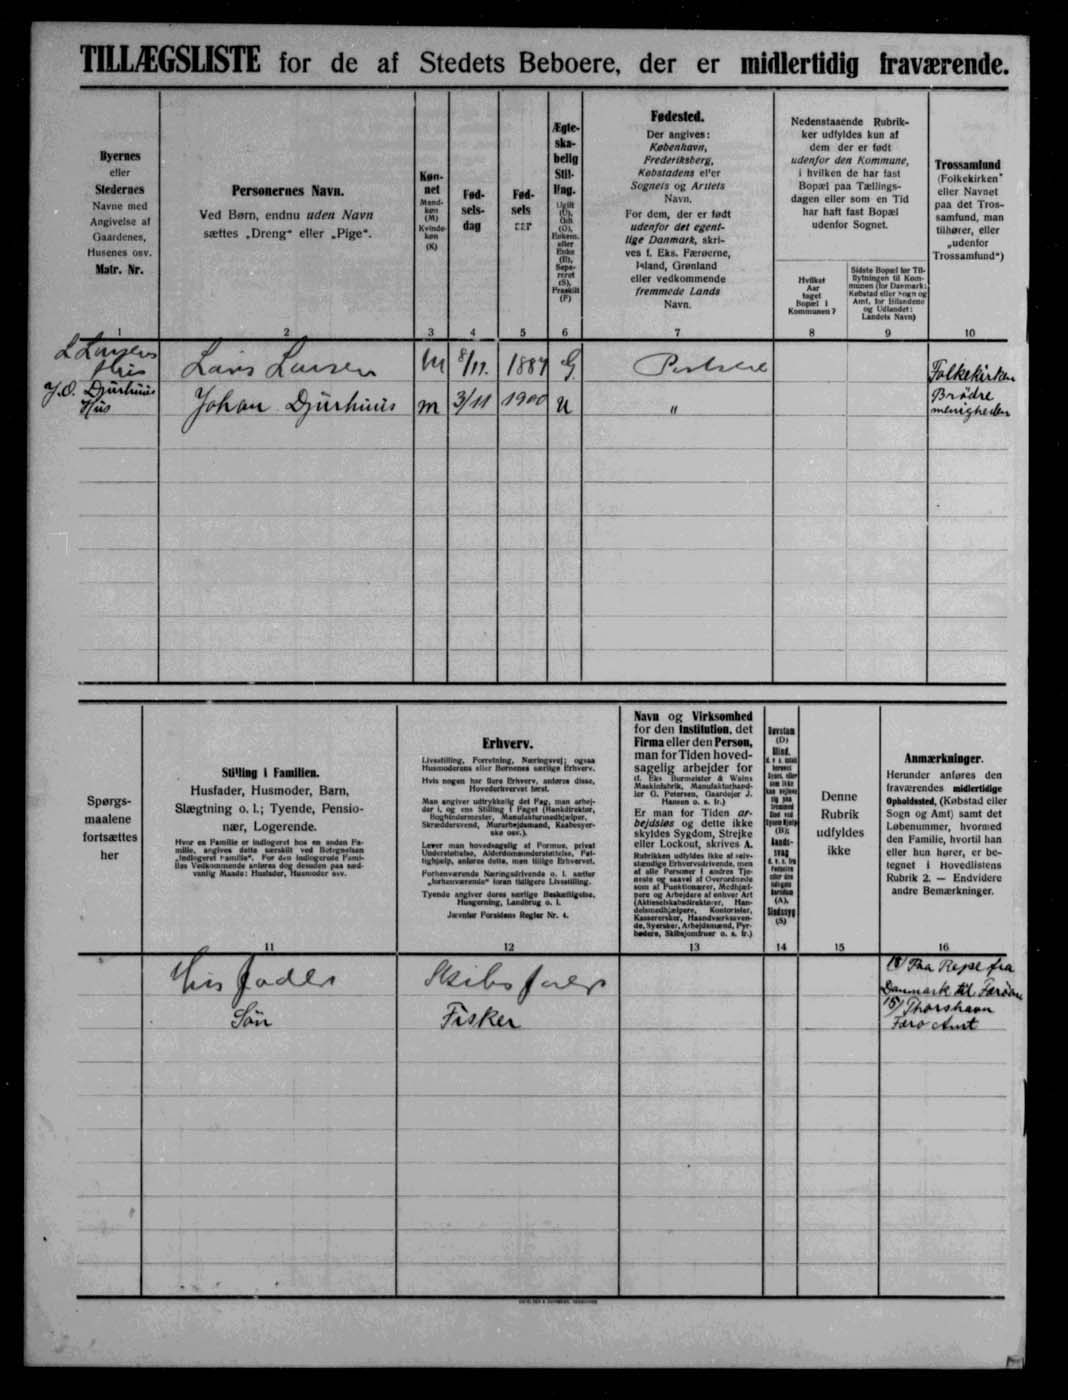 TILLÆGSLISTE for de af Stedets Beboere, der er midlertidig fraværende.
Byernes
eller
Stedernes
Navne med
Angivelse af
Gaardenes,
Husenes osv.
Matr. Nr.
1
Personernes Navn.
Ved Børn, endnu uden Navn
sættes „Dreng“ eller „Pige“.
2
Køn-
net
Mand-
køn
(M)
Kvinde-
køn
(K)
3
Fød-
sels-
dag
4
Fød-
sels
aar
5
Ægte-
ska-
belig
Stil-
ling.
Ugift
(U),
Gift
(G),
Enkem.
eller
Enke
(E),
Sepa-
reret
(S),
Fraskilt
(F)
6
Fødested.
Der angives:
København,
Frederiksberg,
Købstadens eller
Sognets og Amtets
Navn.
For dem, der er født
udenfor det egent-
lige Danmark, skri-
ves f. Eks. Færøerne,
Island, Grønland
eller vedkommende
fremmede Lands
Navn.
7
Nedenstaaende Rubrik-
ker udfyldes kun af
dem der er født
udenfor den Kommune,
i hvilken de har fast
Bopæl paa Tællings-
dagen eller som en Tid
har haft fast Bopæl
udenfor Sognet.
Hvilket
Aar
taget
Bopæl i
Kommunen?
8
Sidste Bopæl før Til-
flytningen til Kom-
munen (for Danmark:
Købstad eller Sogn og
Amt, for Bilandene
og Udlandet:
Landets Navn)
9
Trossamfund
(Folkekirken
eller Navnet
paa det Tros-
samfund, man
tilhører, eller
„udenfor
Trossamfund“)
10
L Larsens
Hus
Lars Larsen M 8/11. 1884 G
Folkekirken
J.O. Djurhuus
Hus
Johan Djurhuus M 3/11 1900 U "
Brødre
menigheden
Spørgs-
maalene
fortsættes
her
Stilling i Familien.
Husfader, Husmoder, Barn,
Slægtning o. l.; Tyende, Pensio-
nær, Logerende.
Hvor en Familie er indlogeret hos en anden Fa-
milie, angives dette særskilt ved Betegnelsen
„Indlogeret Familie“. For den indlogerede Fami-
lies Vedkommende anføres dog desuden paa sæd-
vanlig Maade: Husfader, Husmoder osv.
11
Erhverv.
Livsstilling, Forretning, Næringsvej; ogsaa
Husmoderens eller Børnenes særlige Erhverv.
Hvis nogen har flere Erhverv, anføres disse,
Hovederhvervet først.
Man angiver udtrykkelig det Fag, man arbej-
der i, og ens Stilling i Faget (Bankdirektør,
Bogbindermester, Manufakturmedhjælper,
Skræddersvend, Murarbejdsmand, Kaabesyer-
ske osv.).
Lever man hovedsagelig af Formue, privat
Understøttelse, Aldersdomsunderstøttelse, Fat-
tighjælp, anføres dette, men tillige Erhvervet.
Forhenværende Næringsdrivende o. l. sætter
„forhenværende“ foran tidligere Livsstilling.
Tyende angiver deres særlige Beskæftigelse,
Husgerning, Landbrug o. l.
Jævnfør Forsidens Regler Nr. 4.
12
Navn og Virksomhed
for den Institution, det
Firma eller den Person,
man for Tiden hoved-
sagelig arbejder for
(f. Eks Burmeister & Wains
Maskinfabrik, Manufakturhand-
ler G. Petersen, Gaardejer J.
Hansen o. s. fr.)
Er man for Tiden ar-
bejdsløs og dette ikke
skyldes Sygdom, Strejke
eller Lockout, skrives A.
Rubrikken udfyldes ikke af selv-
stændige Erhvervsdrivende, men
af alle Personer i andres Tje-
neste og saavel af Overordnede
som af Funktionærer, Medhjæl-
pere og Arbejdere af enhver Art
(Aktieselskabsdirektører, Han-
delsmedhjælpere, Kontorister,
Kassererske, Haandværkssven-
de, Syersker, Arbejdsmænd, Fyr-
bødere, Skibsjomfruer o. s. fr.)
13
14
Denne
Rubrik
udfyldes
ikke
15
Anmærkninger.
Herunder anføres den
fraværendes midlertidige
Opholdssted, (Købstad eller
Sogn og Amt) samt det
Løbenummer, hvormed
den Familie, hvortil han
eller hun hører, er be-
tegnet i Hovedlistens
Rubrik 2. — Endvidere
andre Bemærkninger.
16
Husfader Skibsfører
Paa Rejse fra
Danmark til Færøerne
Søn Fisker
15) Thorshavn
Færø Amt